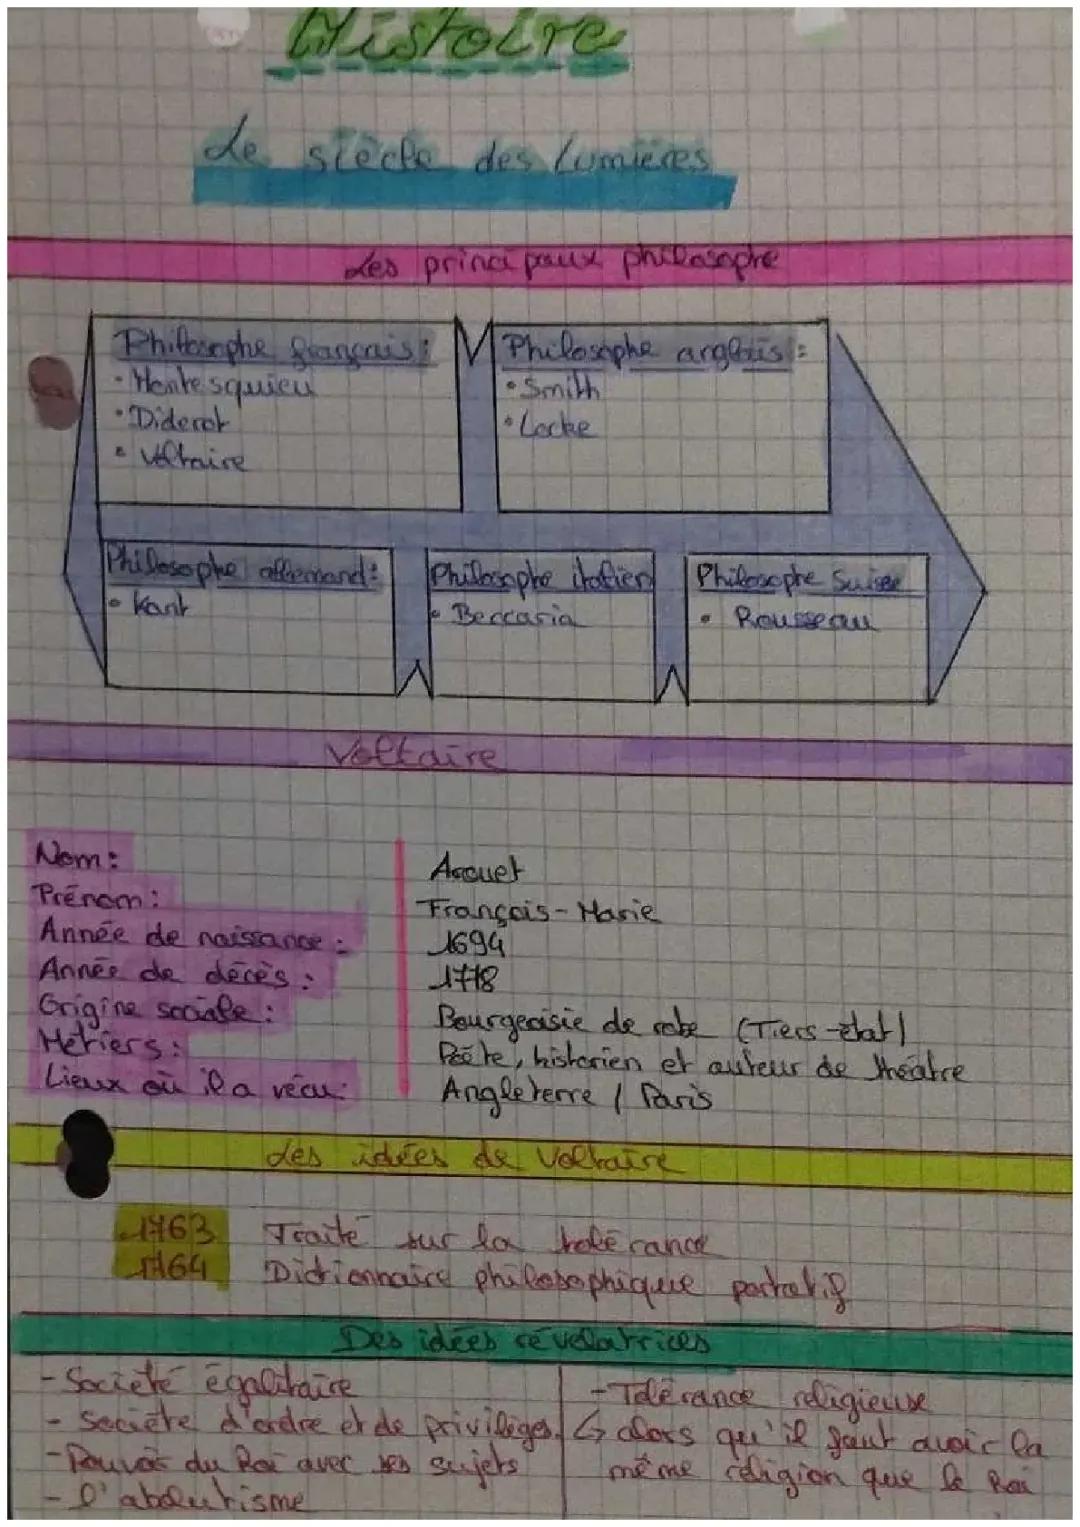 Histoire
Le siècle des Lumières
Les principaux philosophe
Philosophe français :
• Montesquieu
• Diderot
• Voltaire
Philosophe anglais :
• Smith
• Locke
Philosophe allemand :
• Kant
Philosophe italien
• Beccaria
Philosophe Suisse
• Rousseau
Voltaire
Nom : Arouet
Prénom : François-Marie
Année de naissance : 1694
Année de décès : 1778
Origine sociale : Bourgeoisie de robe (Tiers-état)
Métiers : Poète, historien et auteur de théâtre
Lieux où il a vécu : Angleterre / Paris
Les idées de Voltaire
1763 Traité sur la tolérance
1764 Dictionnaire philosophique portatif
Des idées révélatrices
- Société égalitaire
- Société d'ordre et de privilèges.
- Pouvoir du Roi avec ses sujets
- l'absolutisme
- Tolérance religieuse
↳ alors qu'il faut avoir la
même religion que le Roi